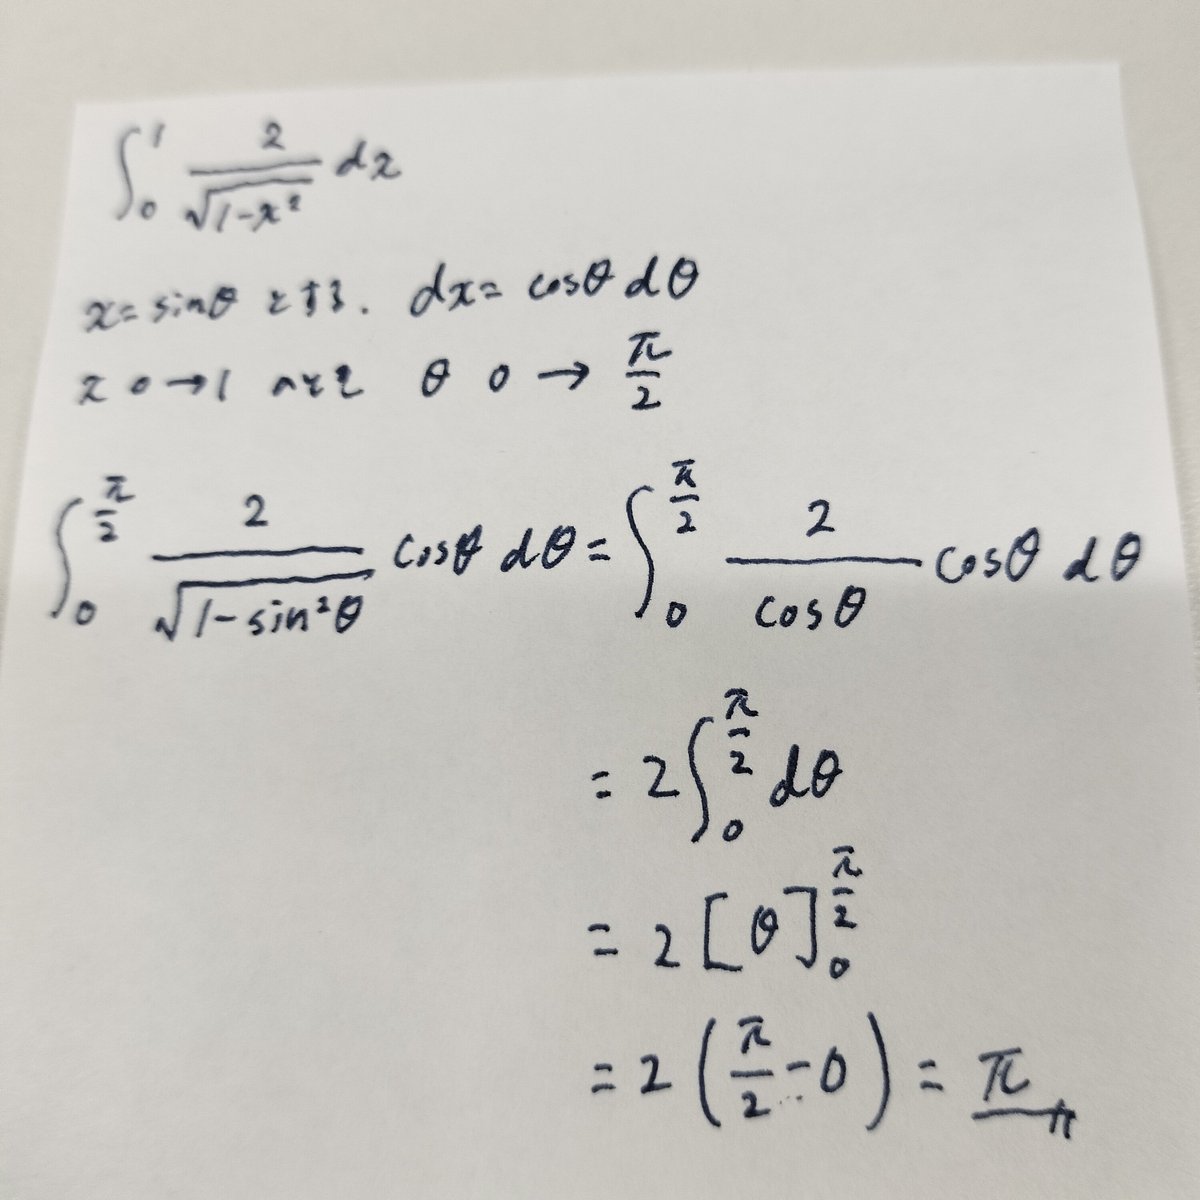 ∫₀¹ 2/√(1-x²) dx
x = sinθ とする. dx = cosθ dθ
x 0→1 のとき θ 0 → π/2
∫₀^(π/2) 2/√(1-sin²θ) cosθ dθ = ∫₀^(π/2) 2/cosθ cosθ dθ
= 2∫₀^(π/2) dθ
= 2[θ]₀^(π/2)
= 2(π/2 - 0) = π